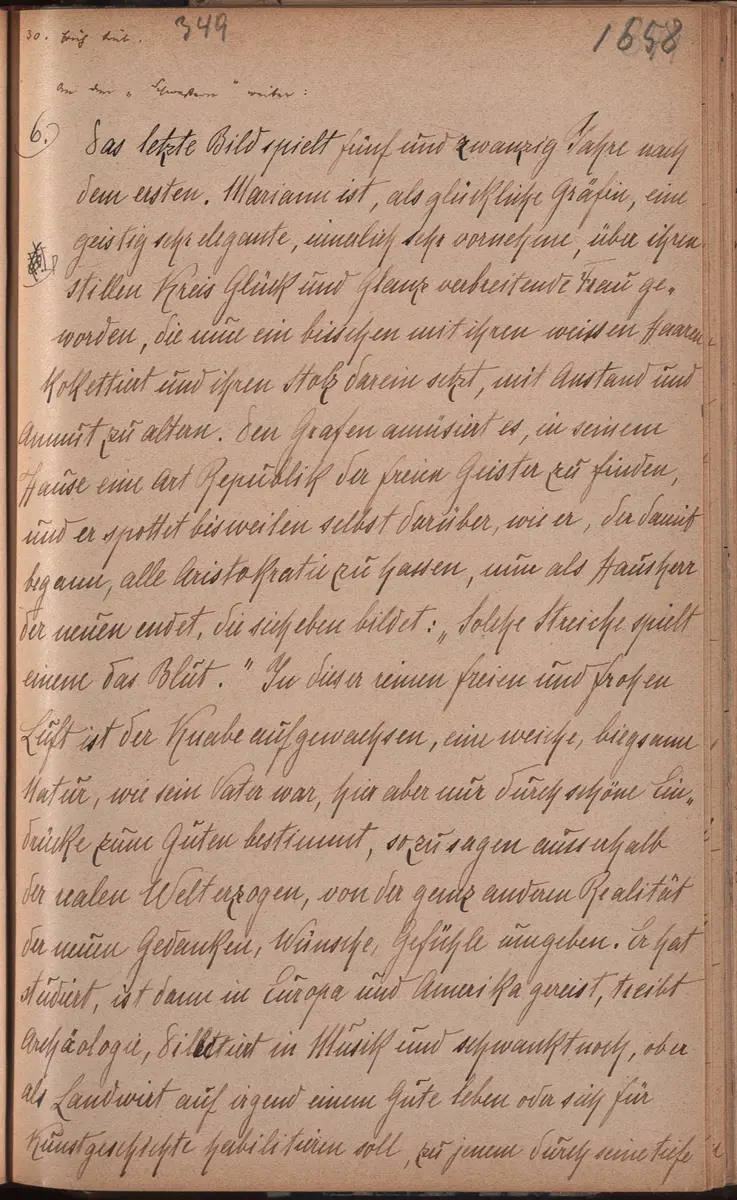 30. früh
349
1658
An den „Schwestern" weiter:
6.) Das letzte Bild spielt fünf und zwanzig Jahre nach
dem ersten. Mariann ist, als glückliche Gräfin, eine
geistig sehr elegante, innerlich sehr vornehme, über ihren
stillen Kreis Glück und Glanz verbreitende Frau ge-
worden, die nun ein bisschen mit ihren weissen Haaren
kokettiert und ihren Stolz darein setzt, mit Anstand und
Anmut zu altern. Den Grafen amüsiert es, in seinem
Hause eine Art Republik der freien Geister zu finden,
und er spottet bisweilen selbst darüber, wie er, der damit
begann, alle Aristokratie zu hassen, nun als Hausherr
der neuen endet, die sich eben bildet: „Solche Streiche spielt
einem das Blut." In dieser reinen freien und frohen
Luft ist der Knabe aufgewachsen, eine weiche, biegsame
Natur, wie sein Vater war, hier aber nur durch schöne Ein-
drücke zum Guten bestimmt, sozusagen ausserhalb
der realen Welt erzogen, von der ganz anderen Realität
der neuen Gedanken, Wünsche, Gefühle umgeben. Er hat
studiert, ist dann in Europa und Amerika gereist, treibt
Archäologie, dilettiert in Musik und schwankt noch, ob er
als Landwirt auf irgend einem Gute leben oder sich für
Kunstgeschichte habilitieren soll, zu jenem durch seine tiefe